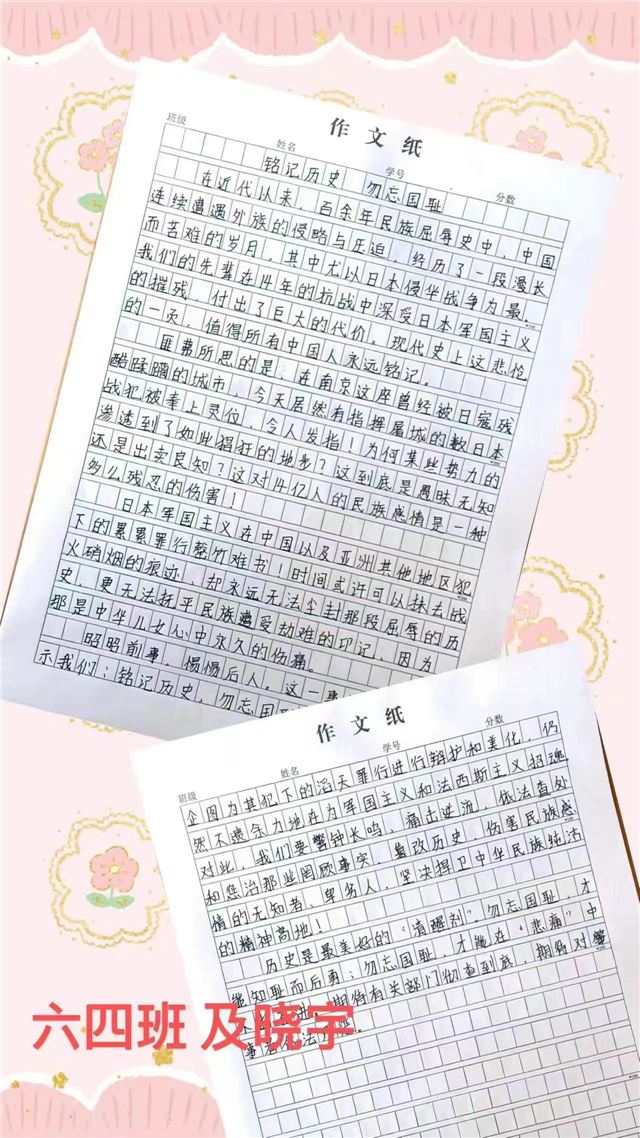 作文纸
班级 姓名 学号 分数
铭记历史 勿忘国耻
在近代以来，百余年民族屈辱史中，中国
连续遭遇外族的侵略与压迫，经历了一段漫长
而苦难的岁月，其中尤以日本侵华战争为最，
我们的先辈在14年的抗战中深受日本军国主义
的摧残，付出了巨大的代价。现代史上这悲怆
的一页，值得所有中国人永远铭记。
匪弗所思的是，在南京这座曾经被日寇残
酷蹂躏的城市，今天居然有指挥屠城的数日本
战犯被奉上灵位，令人发指！为何某些势力的
渗透到了如此猖狂的地步？这到底是愚昧无知
还是出卖良知？这对14亿人的民族感情是一种
多么残忍的伤害！
日本军国主义在中国以及亚洲其他地区犯
下的累累罪行罄竹难书！时间或许可以抹去战
火硝烟的痕迹，却永远无法尘封那段屈辱的历
史，更无法抚平民族遭受劫难的印记，因为
那是中华儿女心中永久的伤痛。
昭昭前事，惕惕后人。这一事
示我们：铭记历史，勿忘国耻
作文纸
班级 姓名 学号 分数
企图为其犯下的滔天罪行进行辩护和美化，仍
然不遗余力地在为军国主义和法西斯主义招魂
对此，我们要警钟长鸣，痛击逆流，依法查处
和惩治那些罔顾事实，篡改历史，伤害民族感
情的无知者、卑劣人，坚决捍卫中华民族纯洁
的精神高地！
历史是最美好的“清醒剂”。勿忘国耻，才
能知耻而后勇；勿忘国耻，才能在“悲痛”中
期待有关部门彻查到底，期待对肇
事者依法
六四班 及晓宇